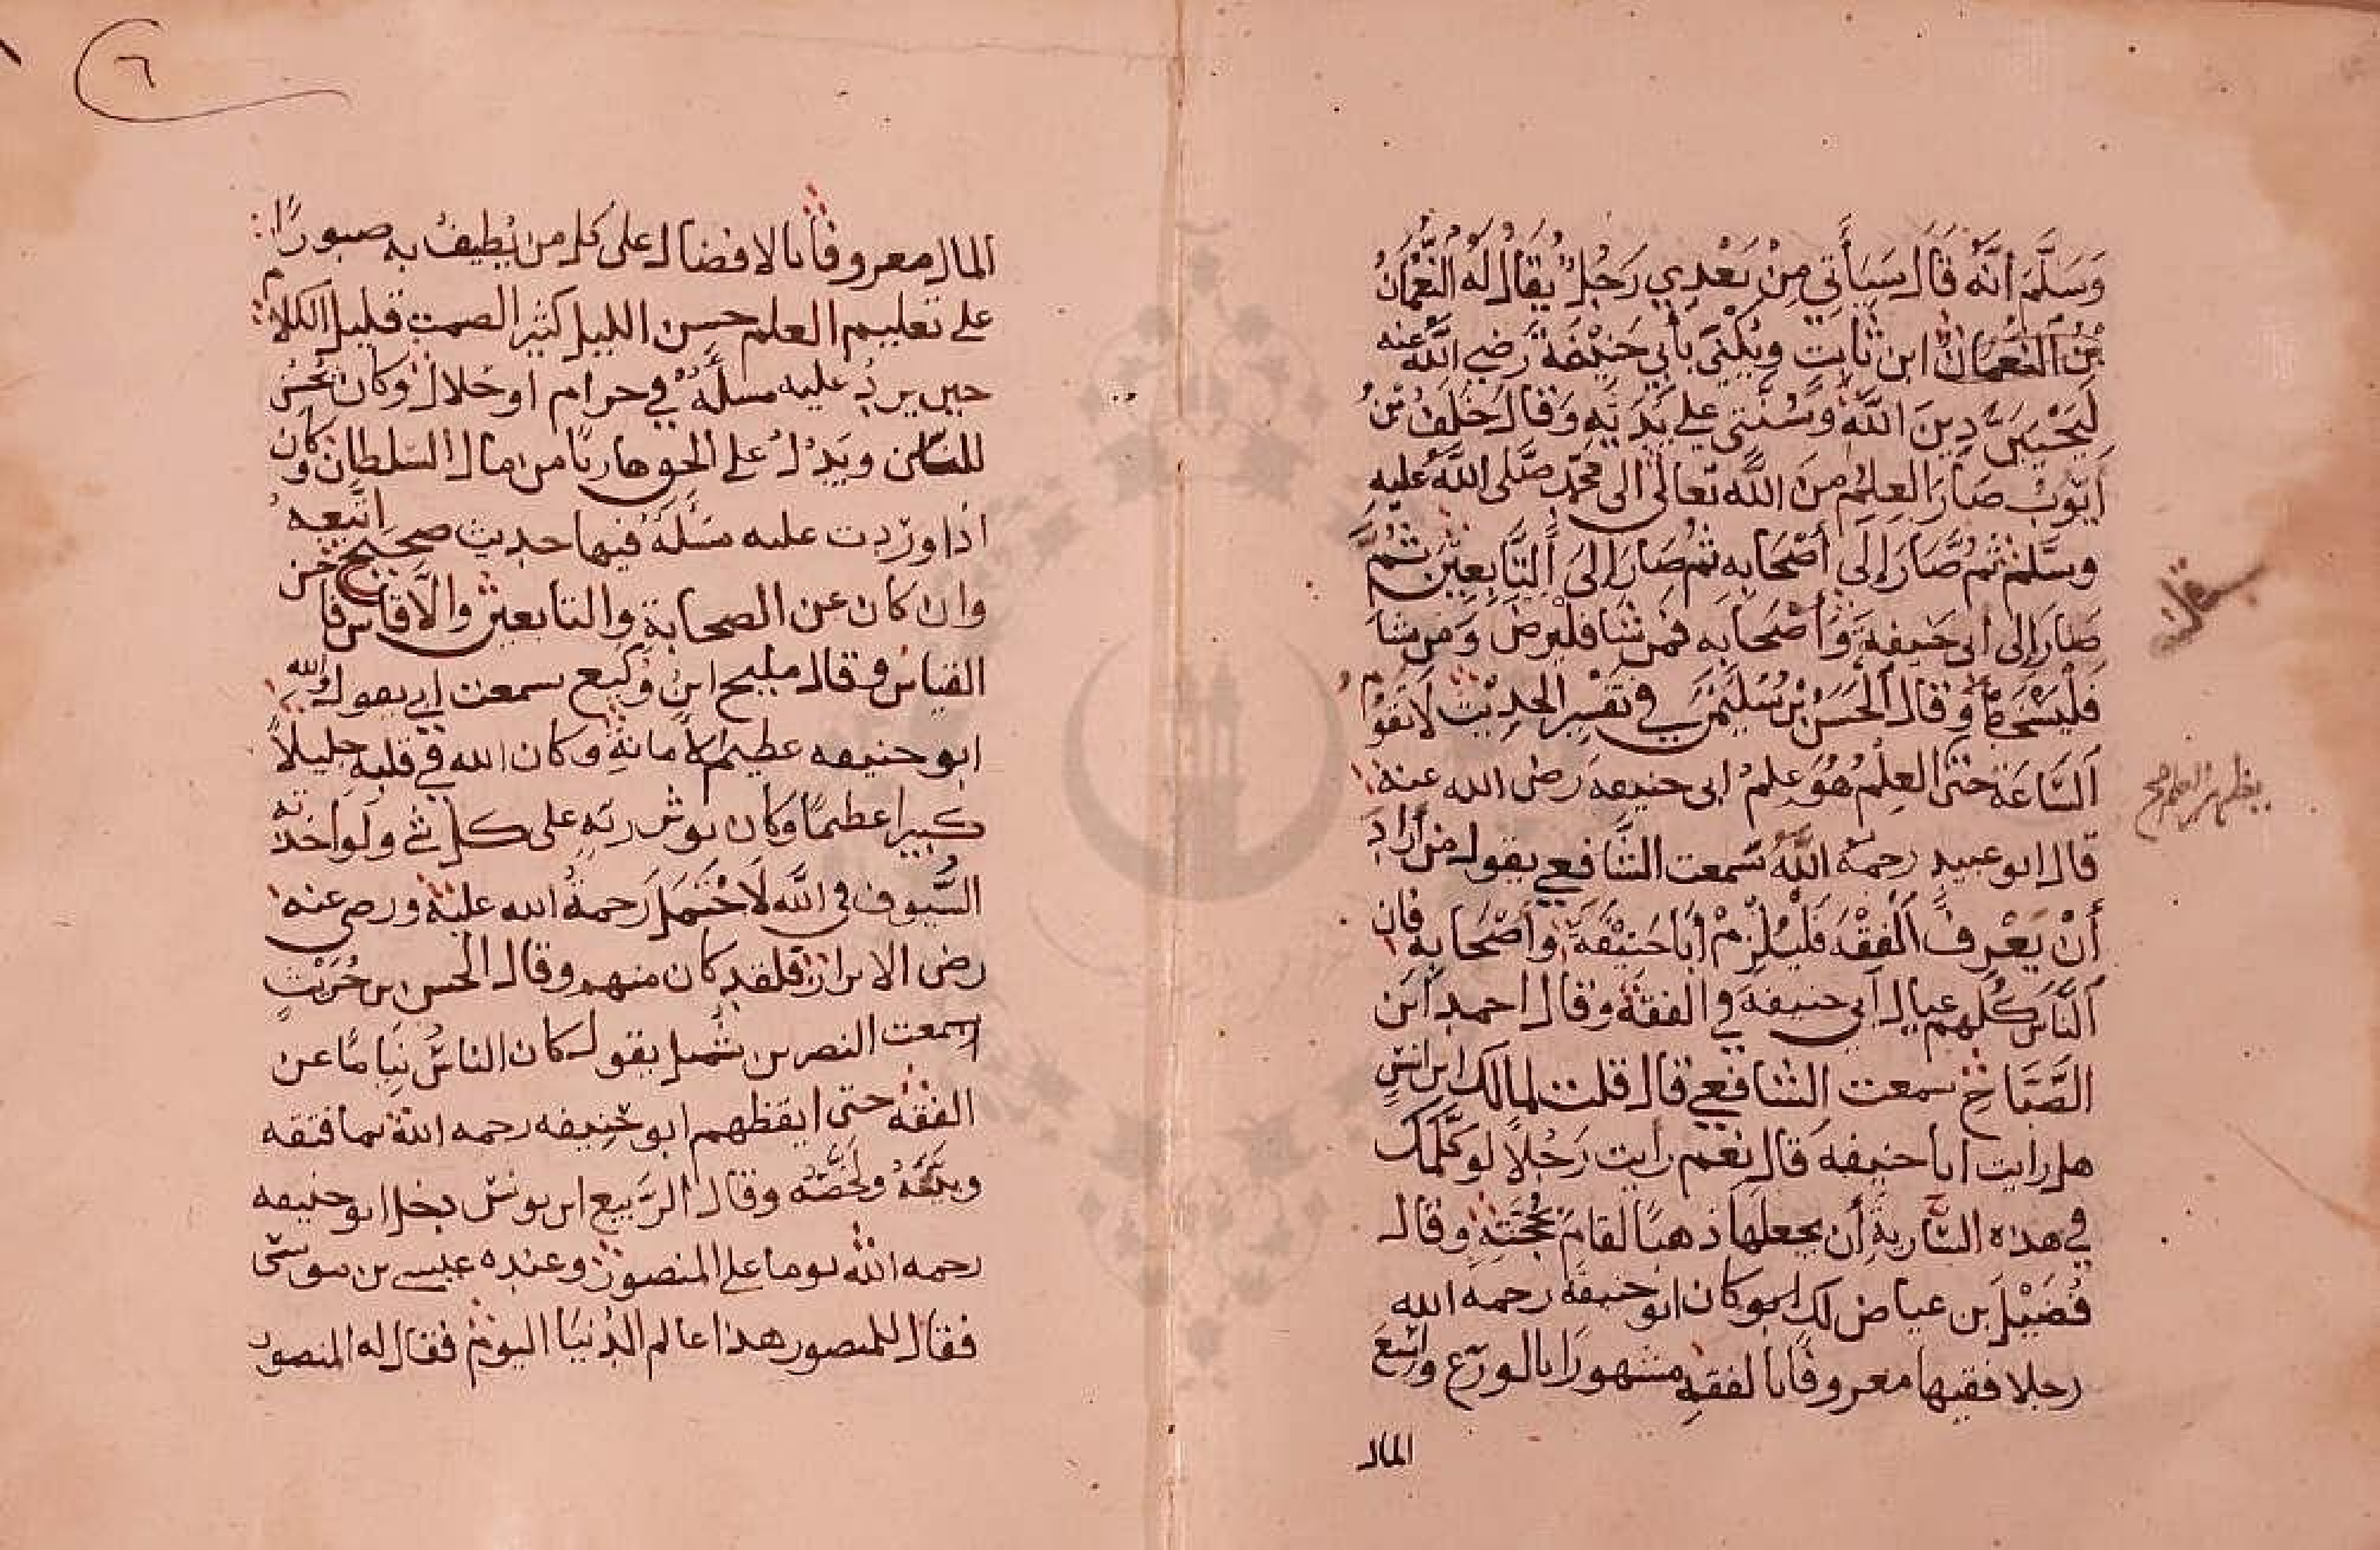 وَسَلَّمَ اَنَّهُ قَالَ سَيَأتِي مِنْ بَعْدِي رَجُلٌ يُقَالُ لَهُ النُّعْمَانُ
بْنُ النعْمَان ابن ثابت ويُكْنَى بأبي حَنِيْفَةَ رَضي اللَّه عنه
لَيَحْيَيَنَّ دِينَ اللَّهِ وَسُنَّتي على يَدَيْهِ وَقَالَ خَلَفُ بْنُ
اَيّوُبْ صَارَ العِلمُ مِنَ اللَّه تَعالى الى مُحَمّد صَلَّى اللَّهُ عليهِ
وسَلَّم ثمّ صَارَ إلَى أَصْحَابِهِ ثم صَارَ إلىَ التَّابِعِيْنَ ثُمَّ
صَارَ إلىٰ ابى حَنِيفةَ وَأَصْحَابِهِ فمن شَا فليَرضَ وَمن شا
فَلْيَسْخَط وقال الْحَسَنُ بْنُ سُلَيْمٰنَ في تفسِيْر الحديْث لَا تَقوُمُ
اَلسَّاعَة حَتىّ العِلْمُ هُوَ عِلمُ ابى حنيفةَ رَضى الله عنه
قال ابو عبيدٍ رحمة اللَّهُ سَمعت الشَّافعي يقول من أرَادَ
أَنْ يَعْرِفَ اَلفِقْهَ فَلْيَلْزَمْ أبَا حَنِيْفَة وأصْحَابِهِ فَان
اَلنَّاس كُلهم عيال اَبي حنيفةَ في الفقه وقال احمد ابن
الصَّبَاحْ سمعت الشافعي قال قلت لمالك ابن انسٍ
هل رايت ابا حنيفةَ قَالَ نعَم رأيت رَجُلاً لو كَلَّمَكَ
في هذه السَّاريةِ أن يجعلهَا ذهبًا لقامَ بحُجَتِهِ وقال
فُضَيْل بن عياض كان ابو حنيفة رحمه الله
رجلا فقيها معروفًا بالفقهِ مشهورًا بالورَعِ واسِعَ
المال
سقلان
يظهر العلم صح
٦
المال معروفًا بالافضال على كل من يُطيفُ به صبورًا
على تعليم العلم حسن الليل كثير الصمتِ قليل الكلام
حين يردُ عليه مسئلة في حرام او حلال وكان يُحسن
ويَدُلُ على الحق هاربًا من مال السّلطان وكان
اذا ورَدت عليه مَسْئلَة فيها حديث صحيح اتبعه
وان كان عن الصحابةِ والتابعين والّا قاس فاحسن
القياس وقال مليح ابن وكيع سمعت ابى يقول كان والله
ابو حنيفه عظيم الأمانةِ وكان الله في قلبهِ جليلاً
كبيرا عظيمًا وكان يوثر ربّهِ على كل شي ولو اخذته
السُّيوف في اللَّه لَاحْتَمَلَ رحمةُ الله عليهُ ورضى عنه
رضى الابرار فلقد كان منهم وقال الحسن بن حُرَيْثٍ
سمعت النضر بن شُميل يقول كان الناسُ نيامًا عن
الفقه حتى ايقظهم ابو حنيفه رحمه الله بما فتقه
وبَيَّنَهُ ولَخَّصَهُ وقال الرَّبيع ابن يونس دخل ابو حنيفه
رحمه الله يوما على المنصور وعنده عيسى بن موسى
فقال للمنصور هذا عالم الدُنيَا اليوْمَ فقال له المنصور